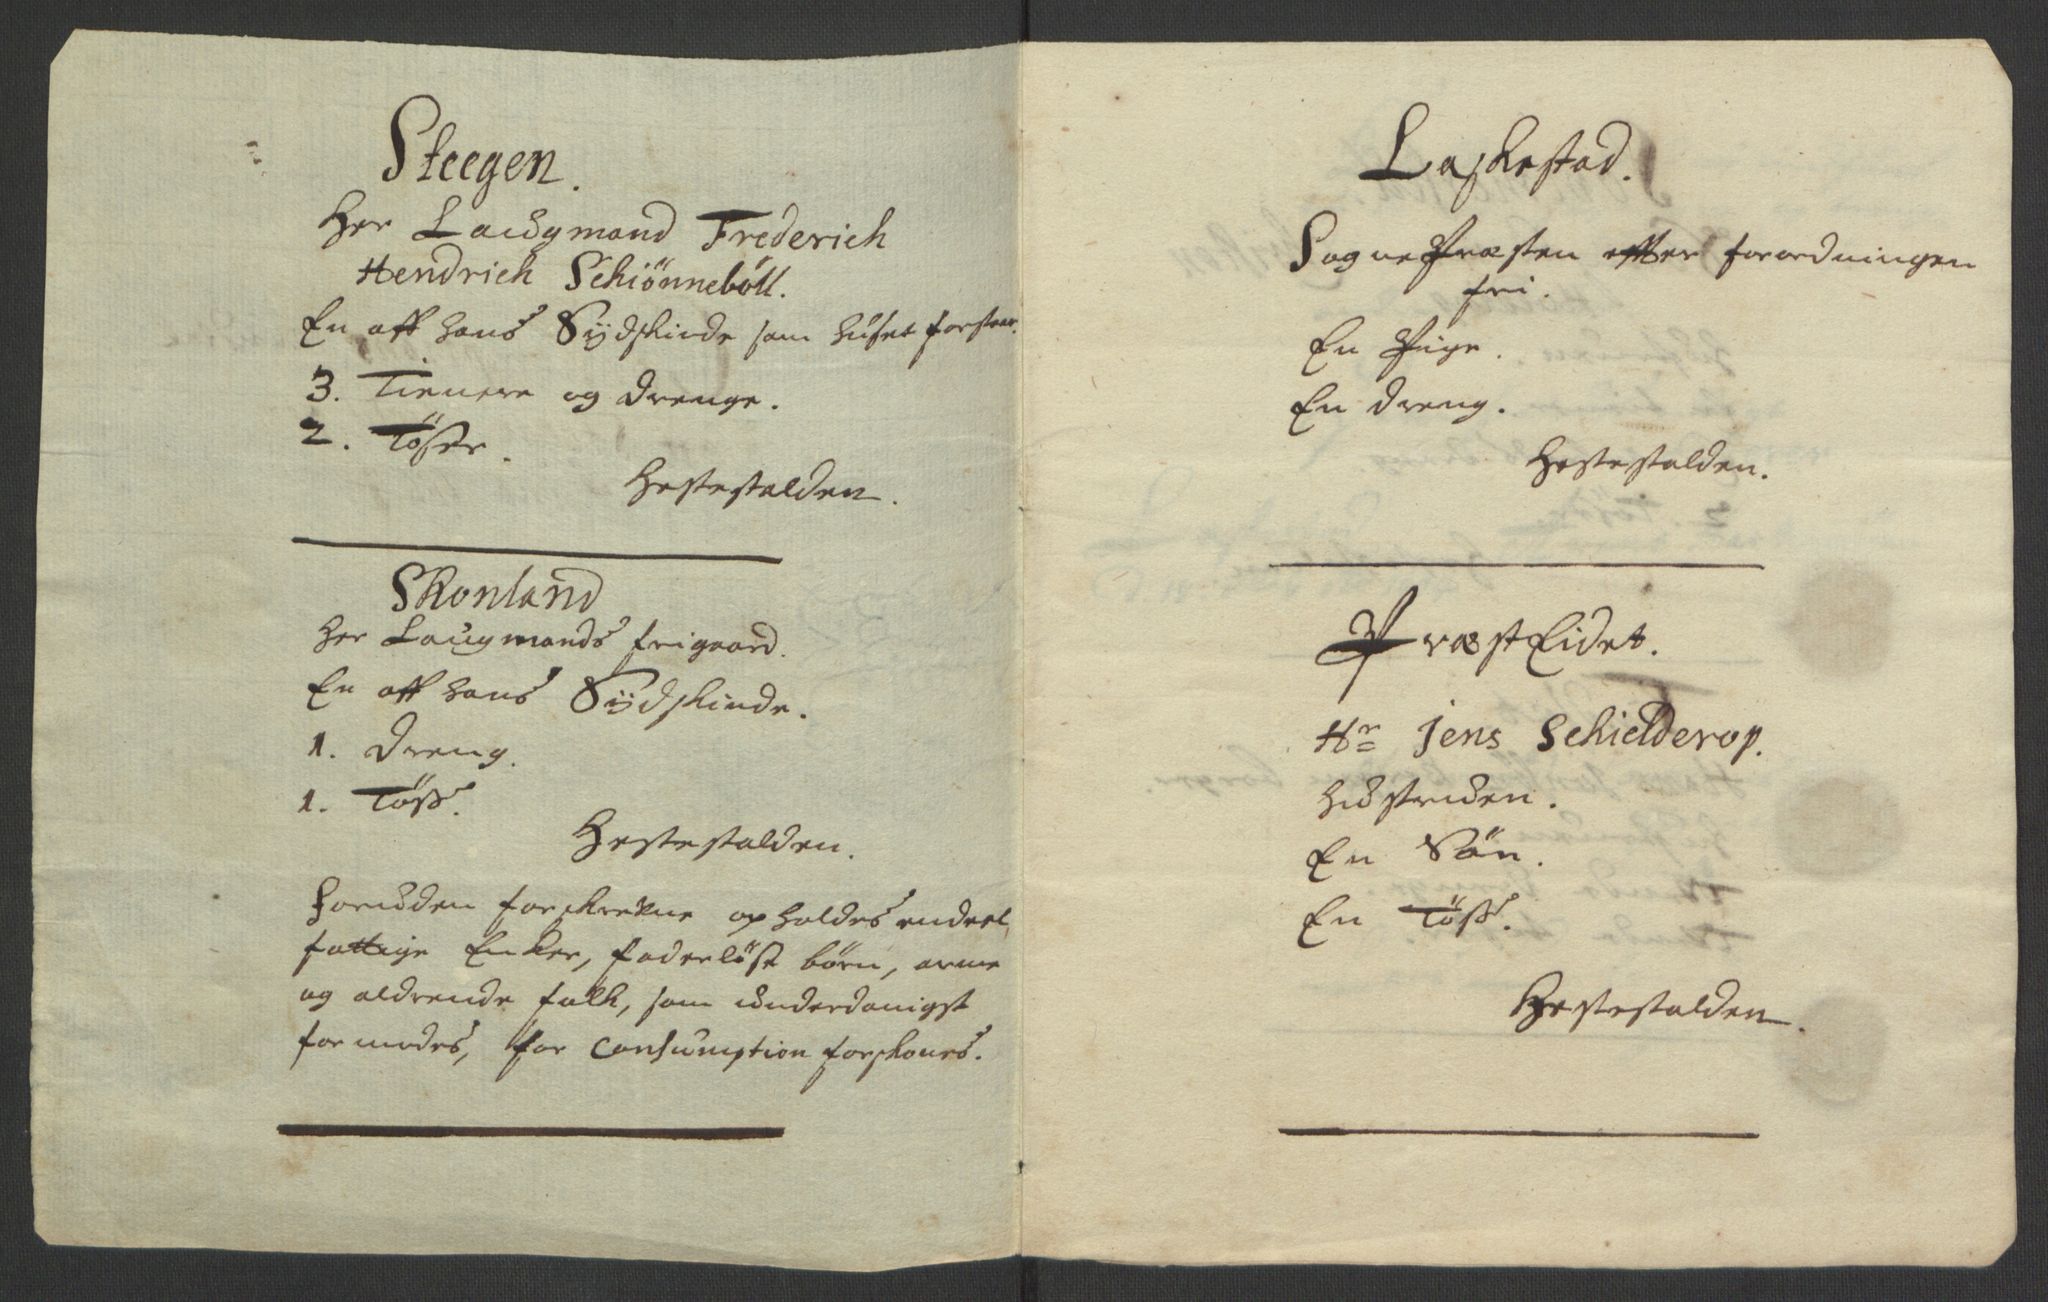 Steegen.
Her Laugmand Frederich
Hendrich Schiönneböll.
En aff hans Sÿdskinde som huset forstaar.
3. Tienere og drenge.
2. Töser.
Hestestalden.
Skonland
Her Laugmands frigaard.
En aff hans Sÿdskinde.
1. dreng.
1. Töss.
Hestestalden.
Foruden forskrefne opholdes endeel
fattige Enker, faderlöse börn, arme
og aldrende folk, som underdanigst
formodes, for Consumption forskones.
Laskestad.
SognePræsten effter forordningen
fri.
En Pige.
En dreng.
Hestestalden.
PræstEidet.
Hr Jens Schielderop.
Hustruen.
En Sön.
En Töss.
Hestestalden.